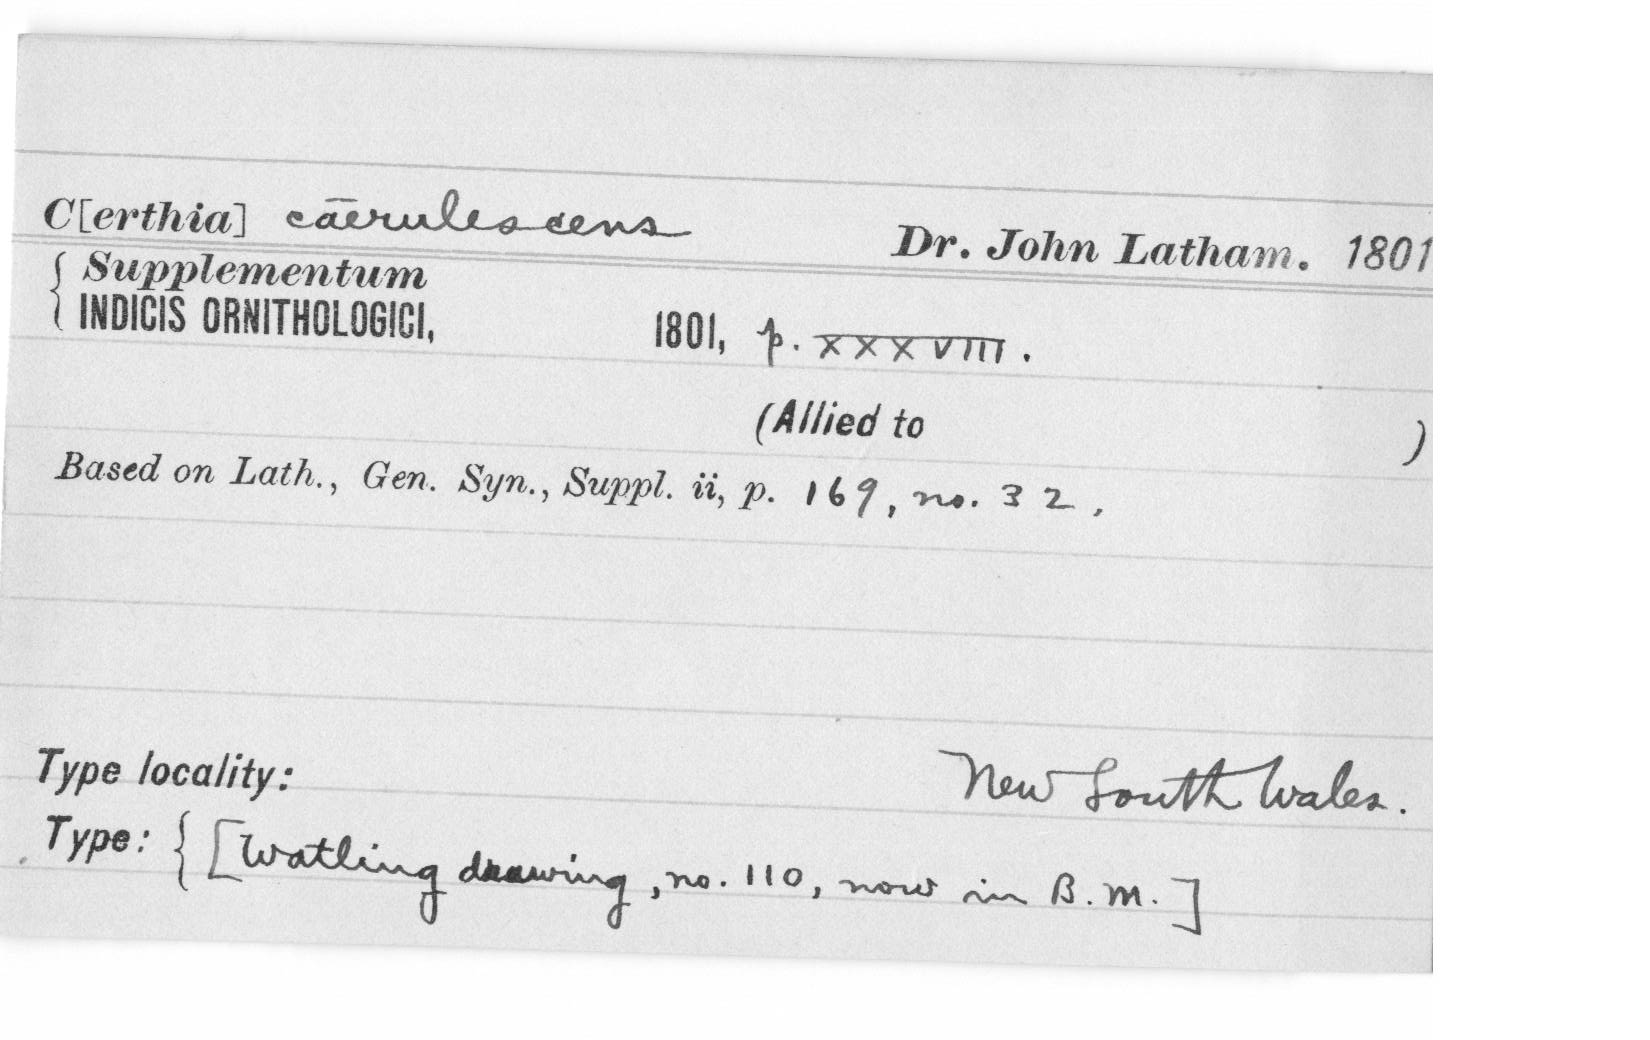 C[erthia] cāerulescens Dr. John Latham. 1801
{ Supplementum
INDICIS ORNITHOLOGICI, 1801, p. XXXVIII.
(Allied to )
Based on Lath., Gen. Syn., Suppl. ii, p. 169, no. 32.
Type locality: New South Wales.
Type: { [Watling drawing, no. 110, now in B.M.]